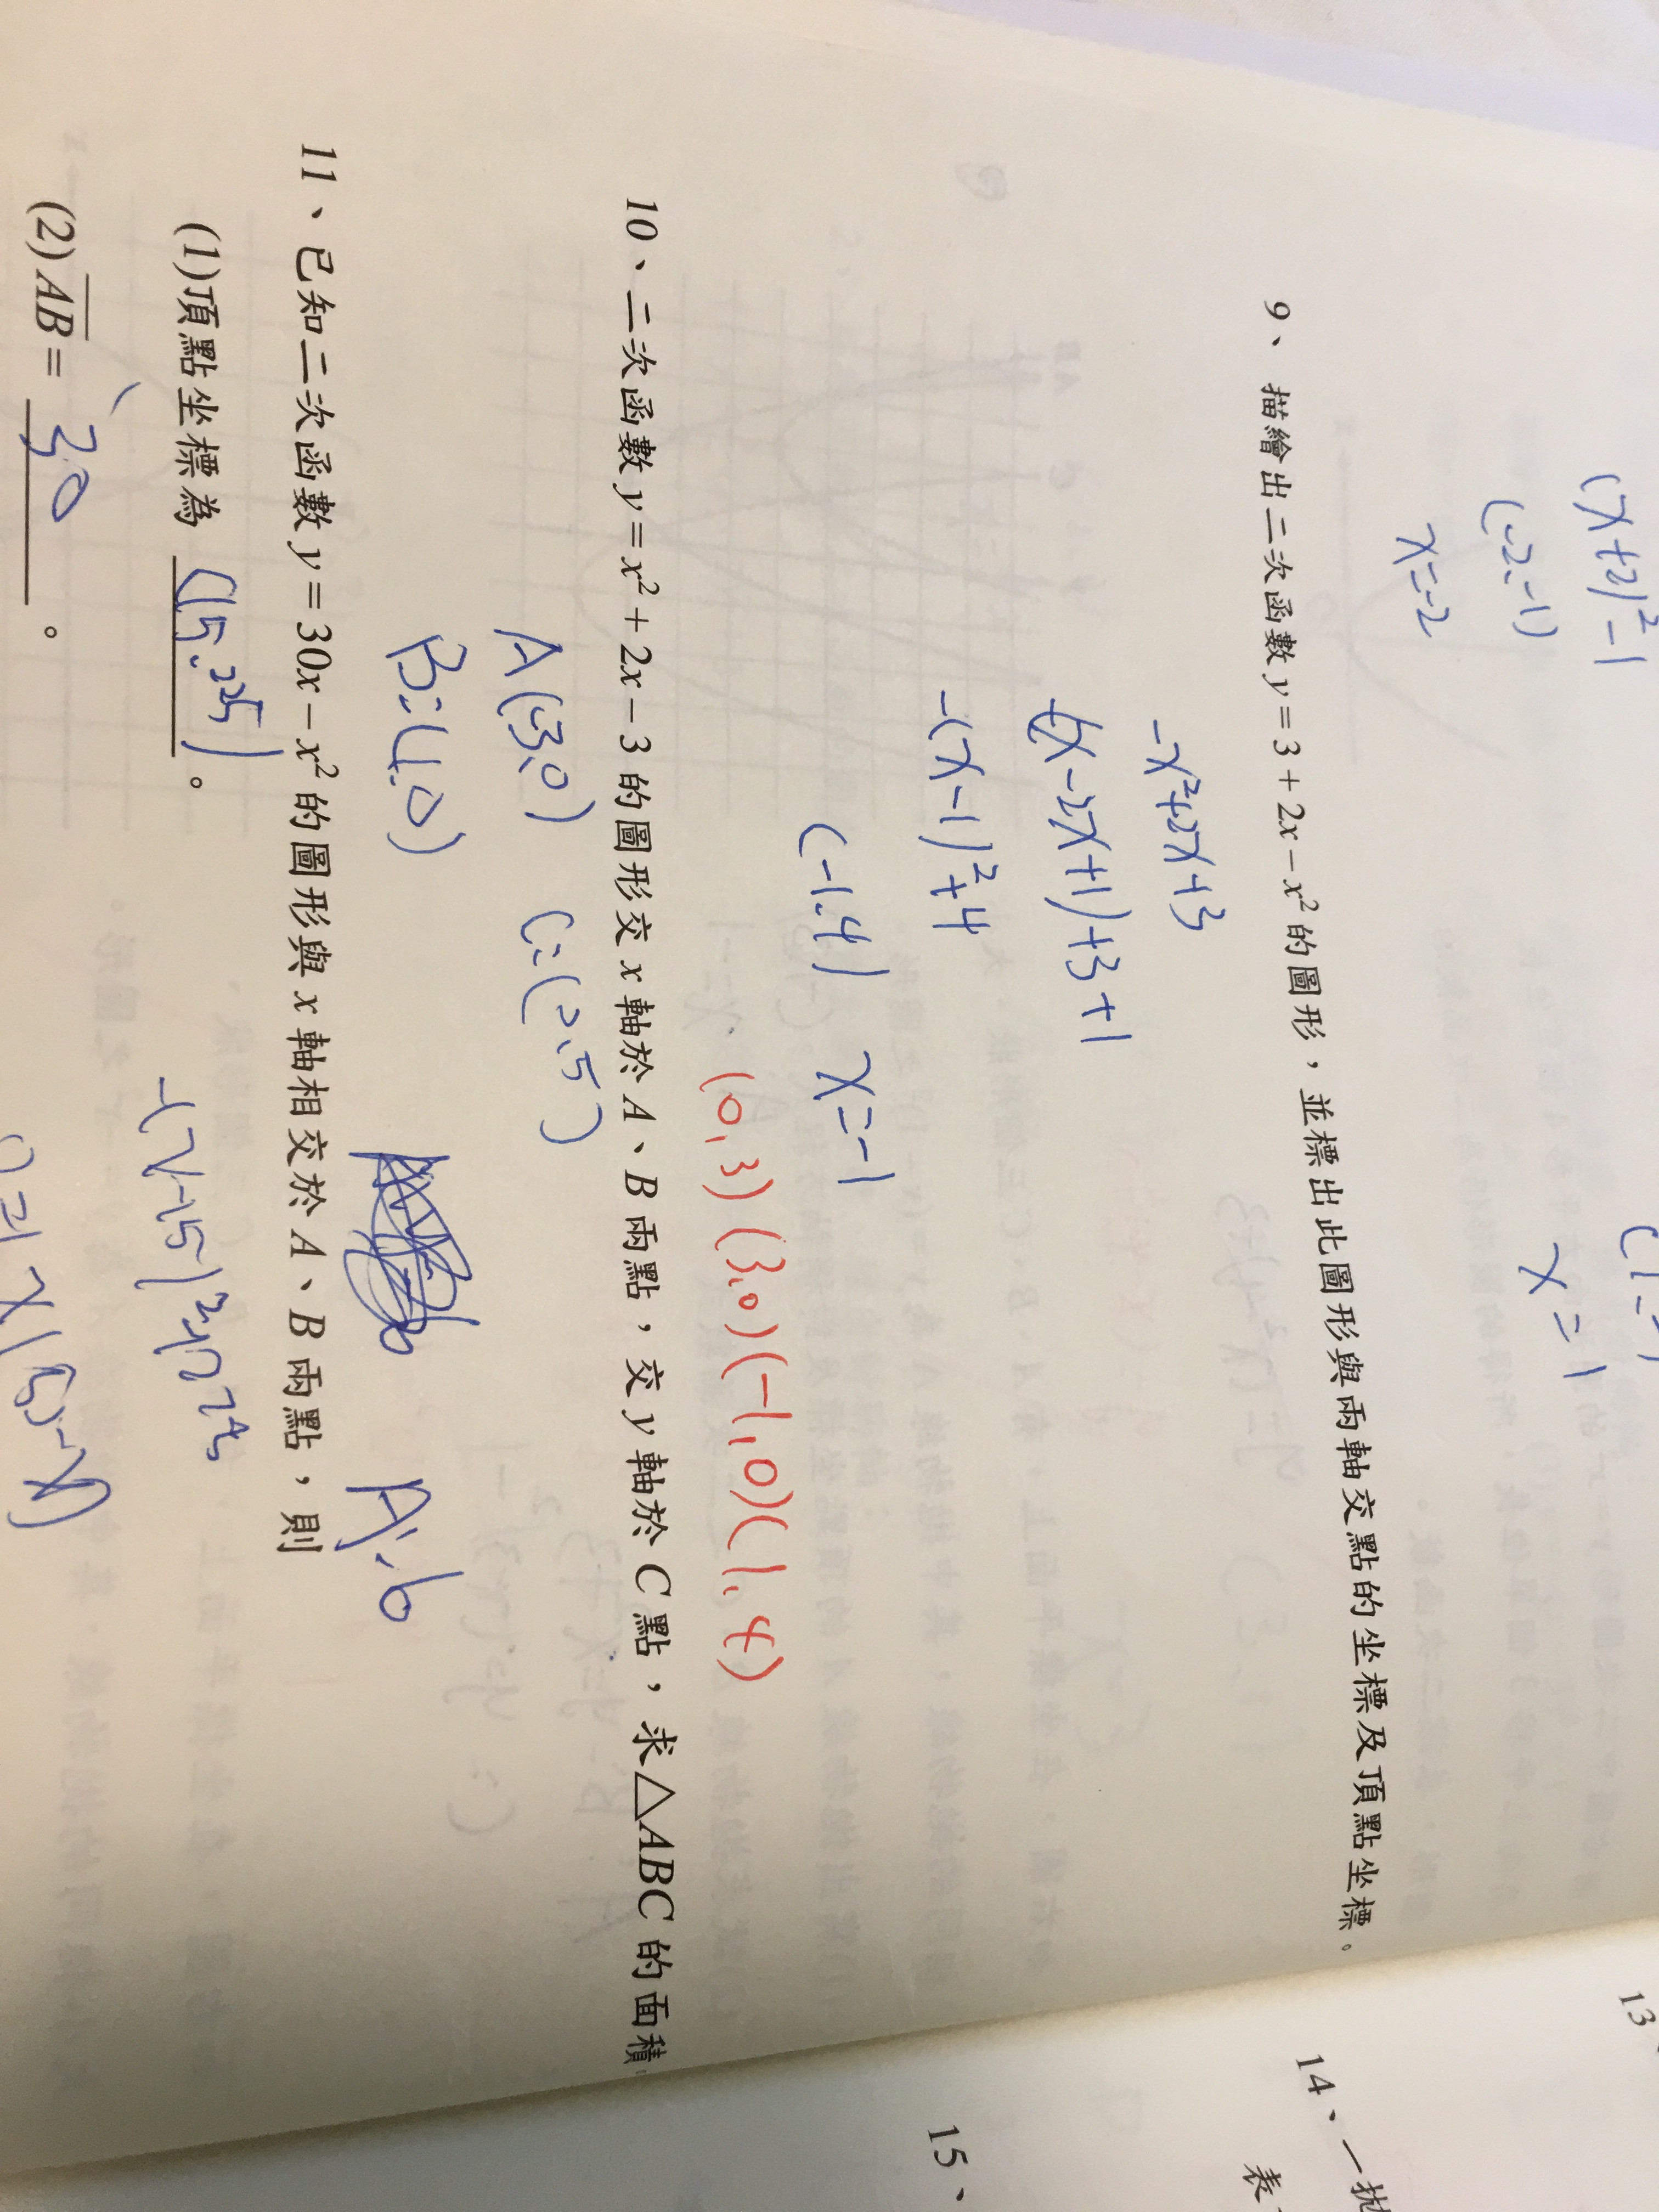 (x+2)²-1
(-2,-1)
x=-2
x=1
9、描繪出二次函數 y=3+2x-x² 的圖形，並標出此圖形與兩軸交點的坐標及頂點坐標。
-x²+2x+3
-(x-1)²+4
(-1.4) x=-1
(0,3) (3,0) (-1,0) (1,4)
10、二次函數 y=x²+2x-3 的圖形交 x 軸於 A、B 兩點，交 y 軸於 C 點，求△ABC 的面積
A(-3,0) C:(2,5)
B:(1,0)
A:6
11、已知二次函數 y=30x-x² 的圖形與 x 軸相交於 A、B 兩點，則
(1)頂點坐標為 (15,225)。
(2)AB= 30。
13、
14、一拋
表
15、